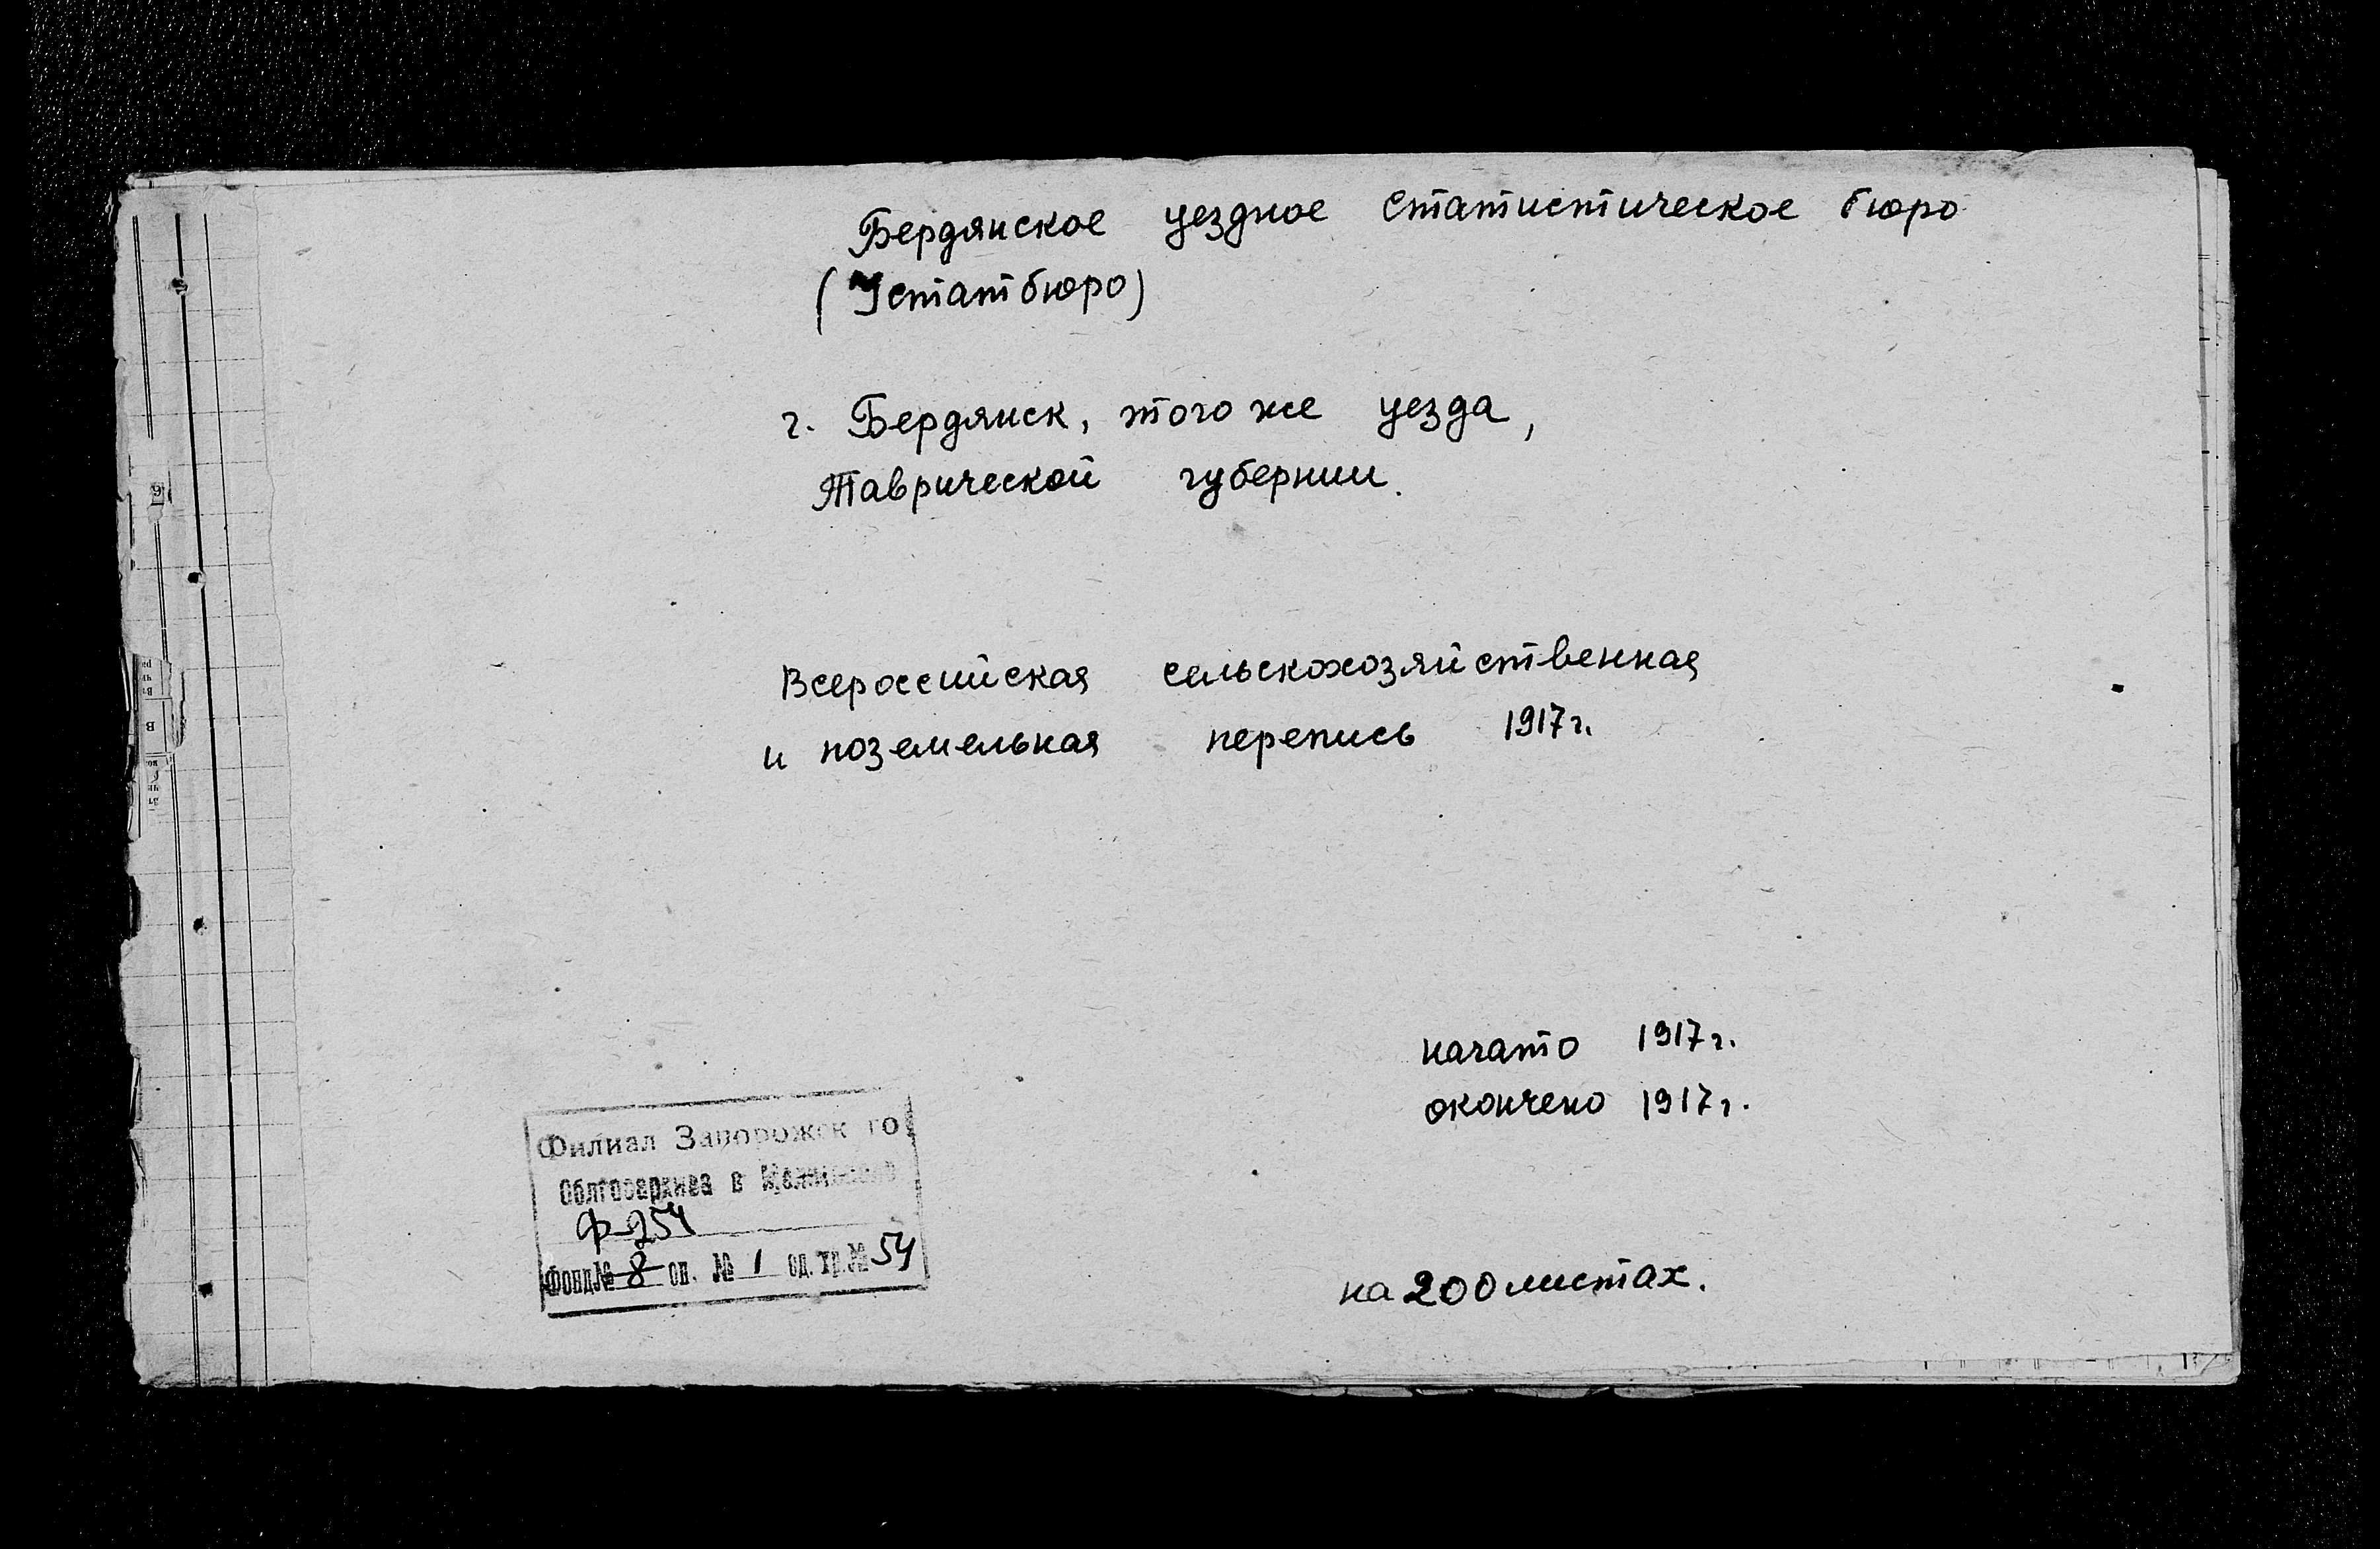 Бердянское уездное статистическое бюро
(Устатбюро)
г. Бердянск, того же уезда,
Таврической губернии.
Всероссийская сельскохозяйственная
и поземельная перепись 1917г.
начато 1917г.
окончено 1917г.
Филиал Запорожск го
Облгосархива в
Ф-254
Фонд№ 8 оп. № 1 ед. хр.№ 54
на 200 листах.